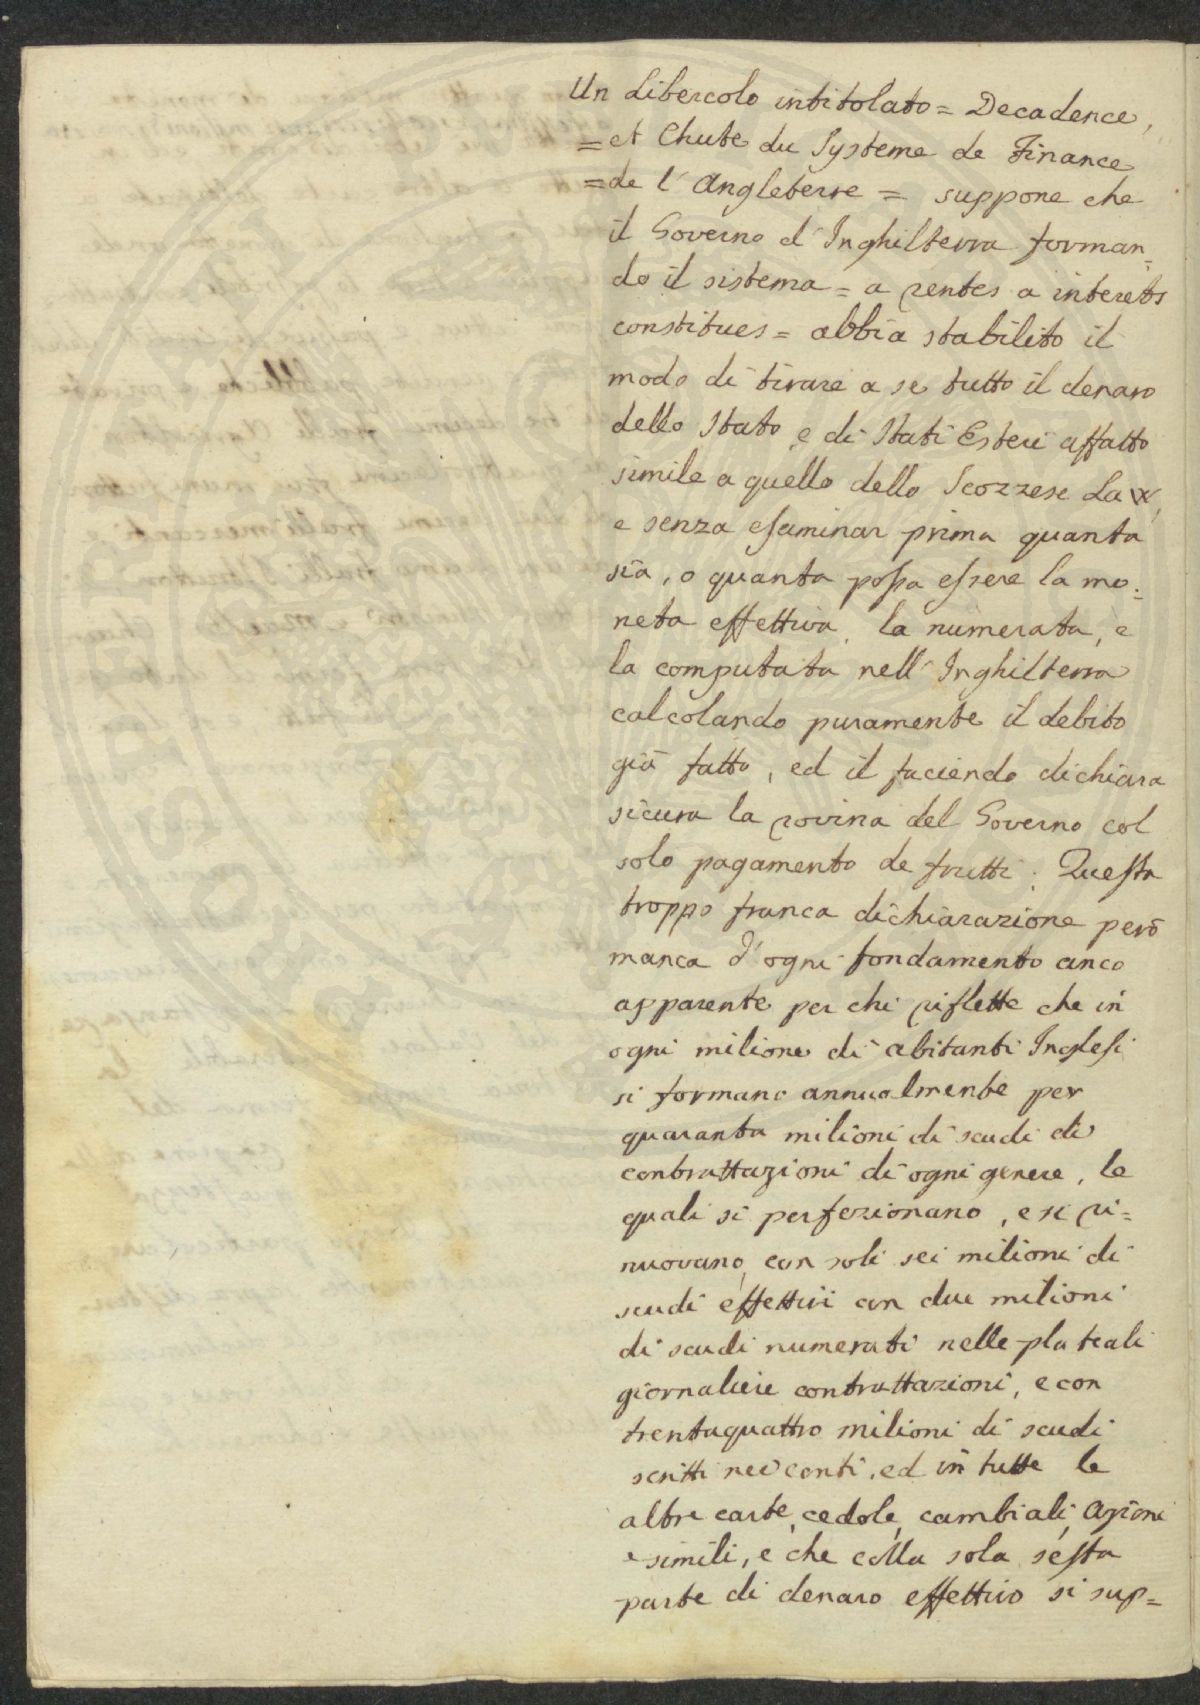 Un Libercolo intitolato = Decadence,
= et Chute du Systeme de Finance
= de l'Angleterre = suppone che
il Governo d'Inghilterra forman=
do il sistema = a rentes a interets
constitues = abbia stabilito il
modo di tirare a se tutto il denaro
dello Stato, e di Stati Esteri affatto
simile a quello dello Scozzese Law,
e senza esaminar prima quanta
sia, o quanta possa essere la mo=
neta effettiva, la numerata, e
la computata nell'Inghilterra
calcolando puramente il debito
già fatto, ed il faciendo dichiara
sicura la rovina del Governo col
solo pagamento de frutti. Questa
troppo franca dichiarazione però
manca d'ogni fondamento anco
apparente per chi riflette che in
ogni milione di abitanti Inglesi
si formano annualmente per
quaranta milioni di scudi di
contrattazioni di ogni genere, le
quali si perfezionano, e si ri=
nuovano, con soli sei milioni di
scudi effettivi con due milioni
di scudi numerati nelle plateali
giornaliere contrattazioni, e con
trentaquattro milioni di scudi
scritti nei conti, ed in tutte le
altre carte, cedole, cambiali, Azioni
e simili, e che colla sola sesta
parte di denaro effettivo si sup=